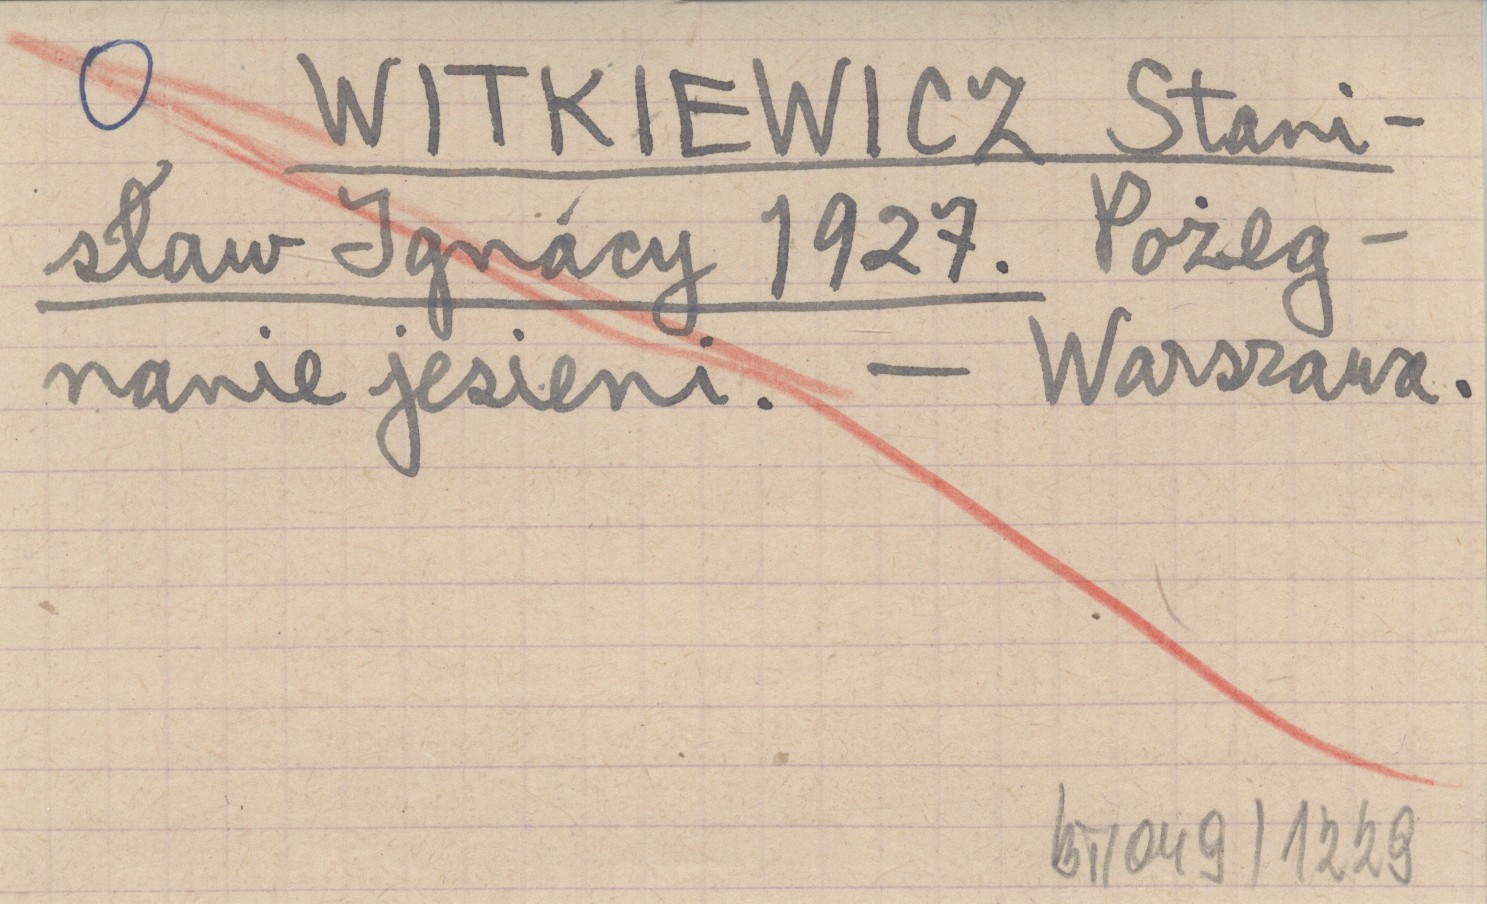 WITKIEWICZ Stani-
sław Ignacy 1927. Pożeg-
nanie jesieni. — Warszawa.
049/1229